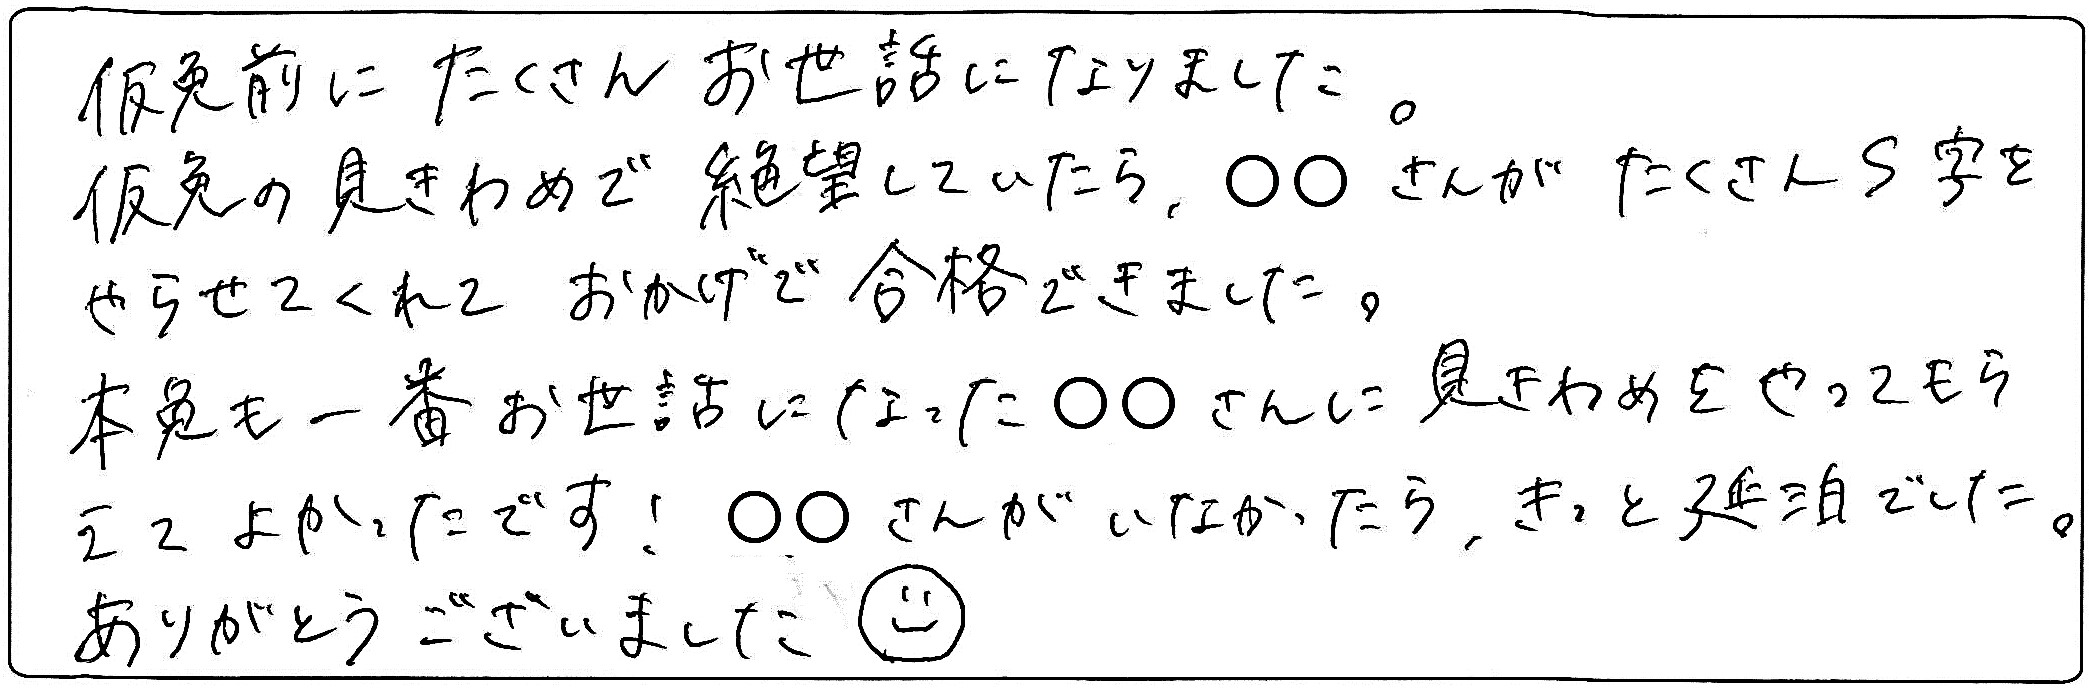 仮免前にたくさんお世話になりました。
仮免の見きわめで絶望していたら、○○さんがたくさんS字を
やらせてくれておかげで合格できました。
本免も一番お世話になった○○さんに見きわめをやってもら
えてよかったです！○○さんがいなかったら、きっと延泊でした。
ありがとうございました